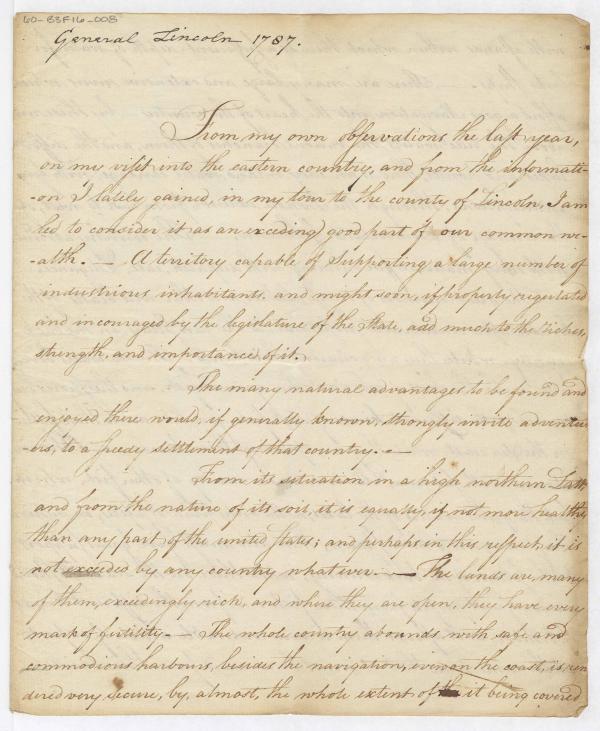 60-83F16-008
General Lincoln 1787.
From my own observations the last year,
on my visit into the eastern country, and from the informati-
-on I lately gained, in my tour to the county of Lincoln, I am
led to consider it as an exceding good part of our common we-
-alth. — A territory capable of Supporting a large number of
industrious inhabitants, and might soon, if properly regulated
and incouraged by the legislature of the State, add much to the riches,
strength, and importance of it.
The many natural advantages to be found and
enjoyed there would, if generally known, strongly invite adventur
-ers, to a speedy settlement of that country. —
From its situation in a high northern Latt
and from the nature of its soil, it is equally, if not more healthy
than any part of the united states; and perhaps in this respect, it is
not exceeded by any country whatever. — The lands are, many
of them, exceedingly rich, and where they are open, they have every
mark of fertility. — The whole country abounds with safe and
commodious harbours, besides the navigation, even on the coast, is ren
dered very secure, by, almost, the whole extent of it being covered